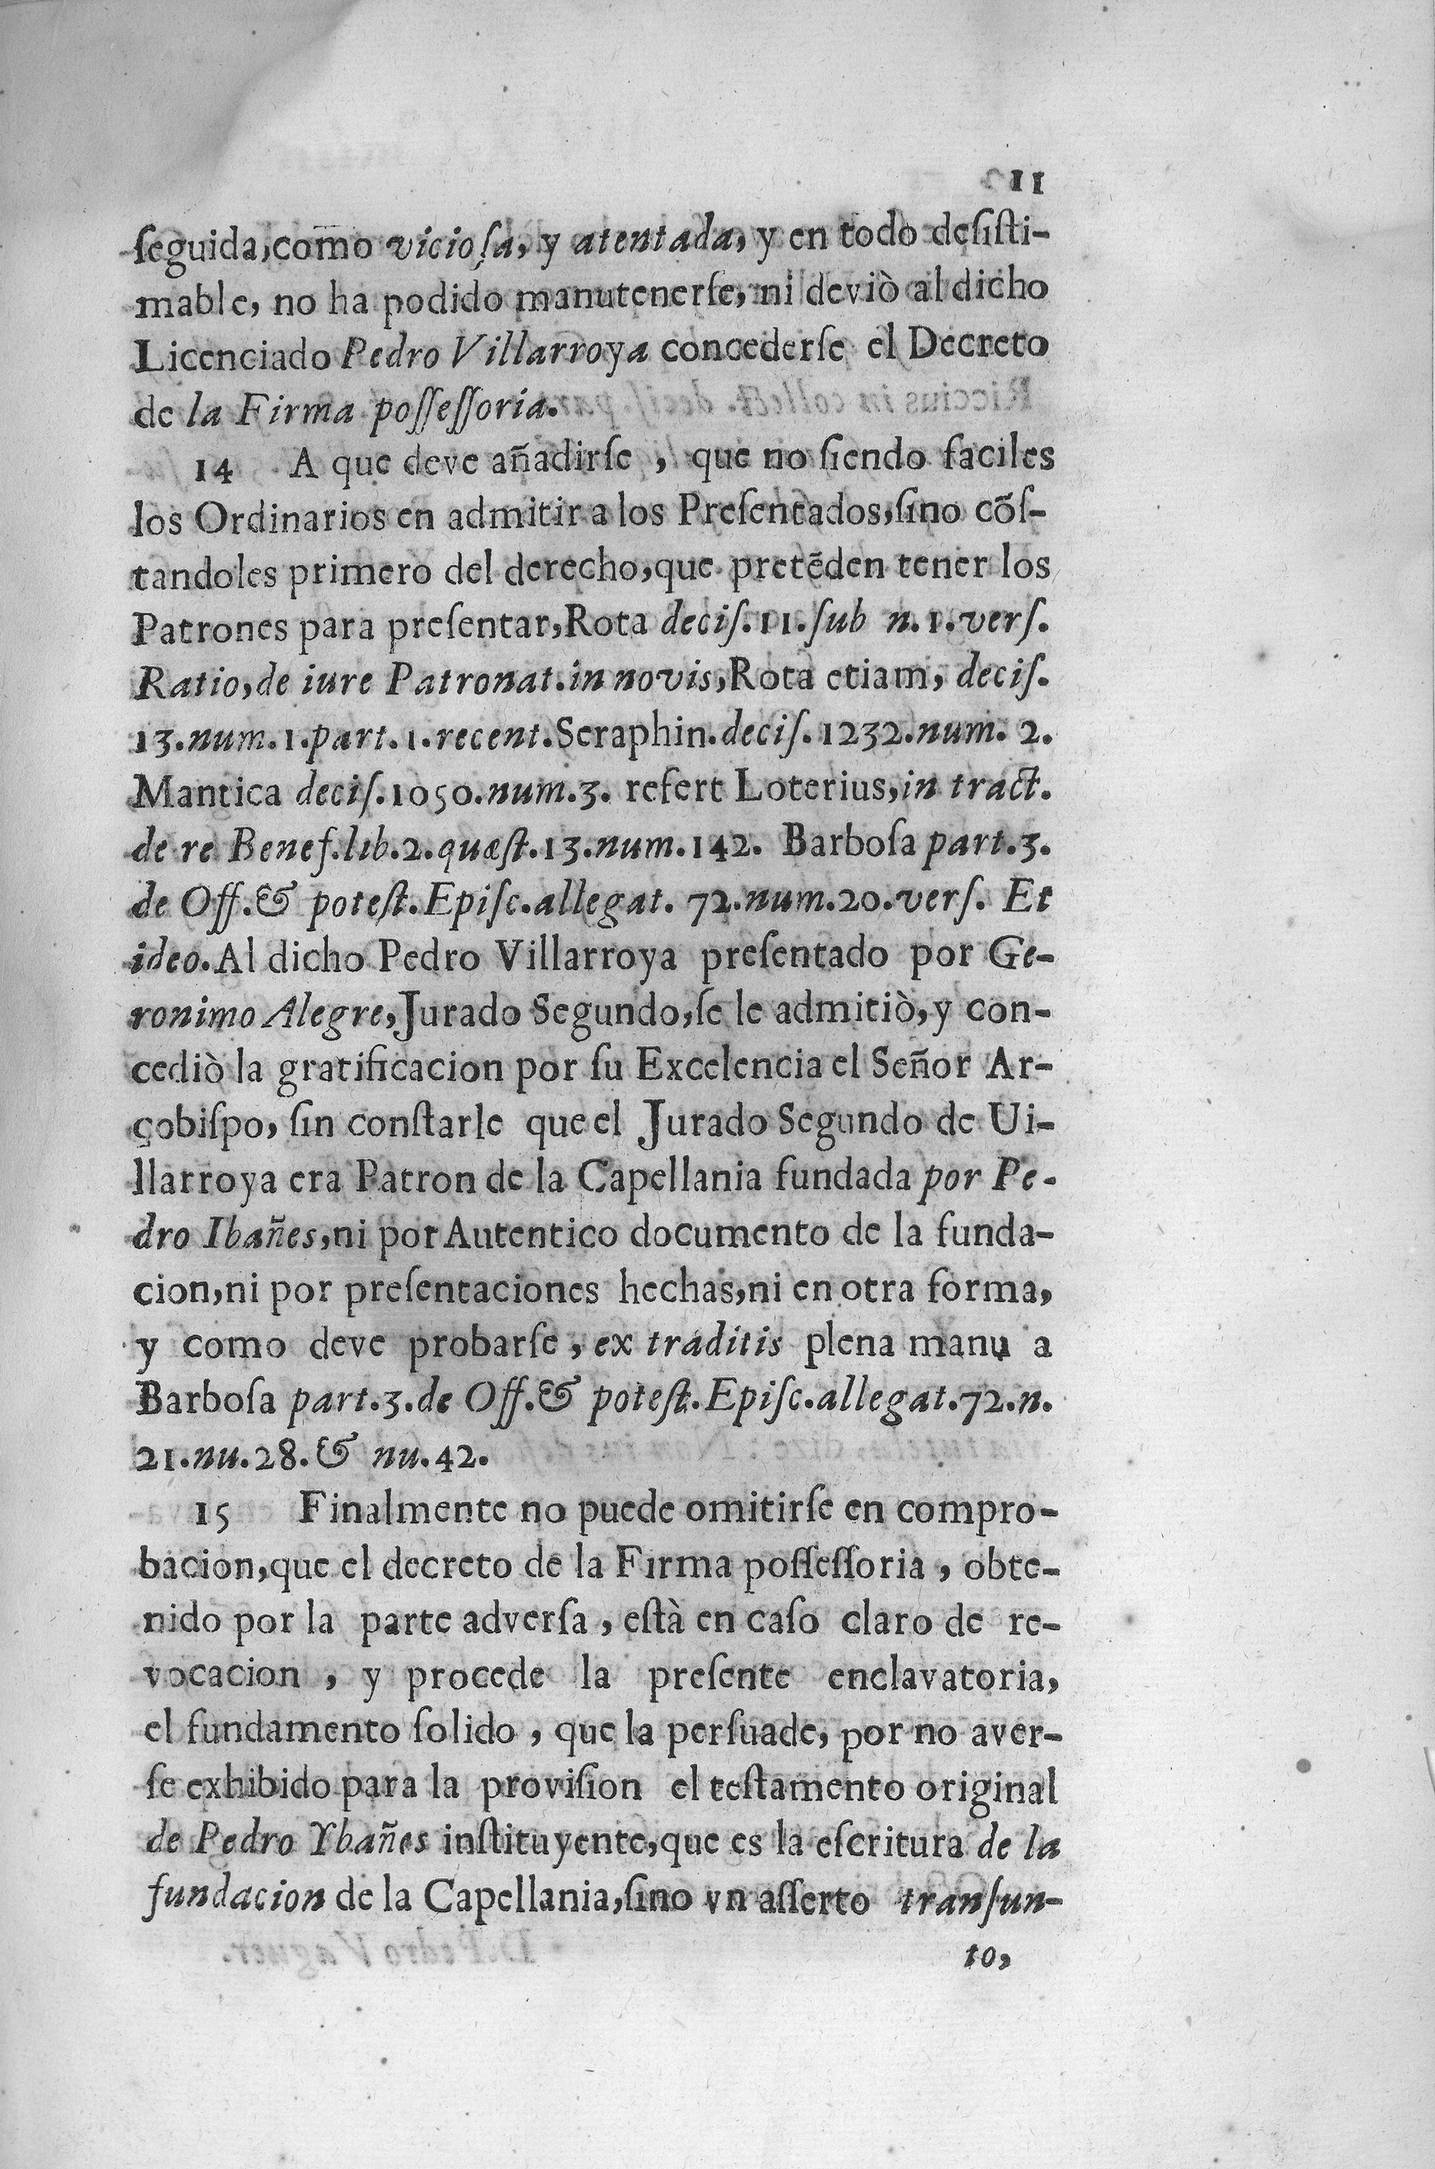 11
ſeguida, como vicioſa, y atentada, y en todo deſiſti-
mable, no ha podido manutenerſe, ni deviò al dicho
Licenciado Pedro Villarroya concederſe el Decreto
de la Firma poſſeſſoria.
14 A que deve añadirſe, que no ſiendo faciles
los Ordinarios en admitir a los Preſentados, ſino cõſ-
tandoles primero del derecho, que pretẽden tener los
Patrones para preſentar, Rota deciſ. 11. ſub n. 1. verſ.
Ratio, de iure Patronat. in novis, Rota etiam, deciſ.
13. num. 1. part. 1. recent. Seraphin. deciſ. 1232. num. 2.
Mantica deciſ. 1050. num. 3. refert Loterius, in tract.
de re Benef. lib. 2. quæſt. 13. num. 142. Barboſa part. 3.
de Off. & poteſt. Epiſc. allegat. 72. num. 20. verſ. Et
ideo. Al dicho Pedro Villarroya preſentado por Ge-
ronimo Alegre, Jurado Segundo, ſe le admitiò, y con-
cediò la gratificacion por ſu Excelencia el Señor Ar-
çobiſpo, ſin conſtarle que el Jurado Segundo de Ui-
llarroya era Patron de la Capellania fundada por Pe-
dro Ibañes, ni por Autentico documento de la funda-
cion, ni por preſentaciones hechas, ni en otra forma,
y como deve probarſe, ex traditis plena manu a
Barboſa part. 3. de Off. & poteſt. Epiſc. allegat. 72. n.
21. nu. 28. & nu. 42.
15 Finalmente no puede omitirſe en compro-
bacion, que el decreto de la Firma poſſeſſoria, obte-
nido por la parte adverſa, eſtà en caſo claro de re-
vocacion, y procede la preſente enclavatoria,
el fundamento ſolido, que la perſuade, por no aver-
ſe exhibido para la proviſion el teſtamento original
de Pedro Ybañes inſtituyente, que es la eſcritura de la
fundacion de la Capellania, ſino vn aſſerto tranſun-
to,